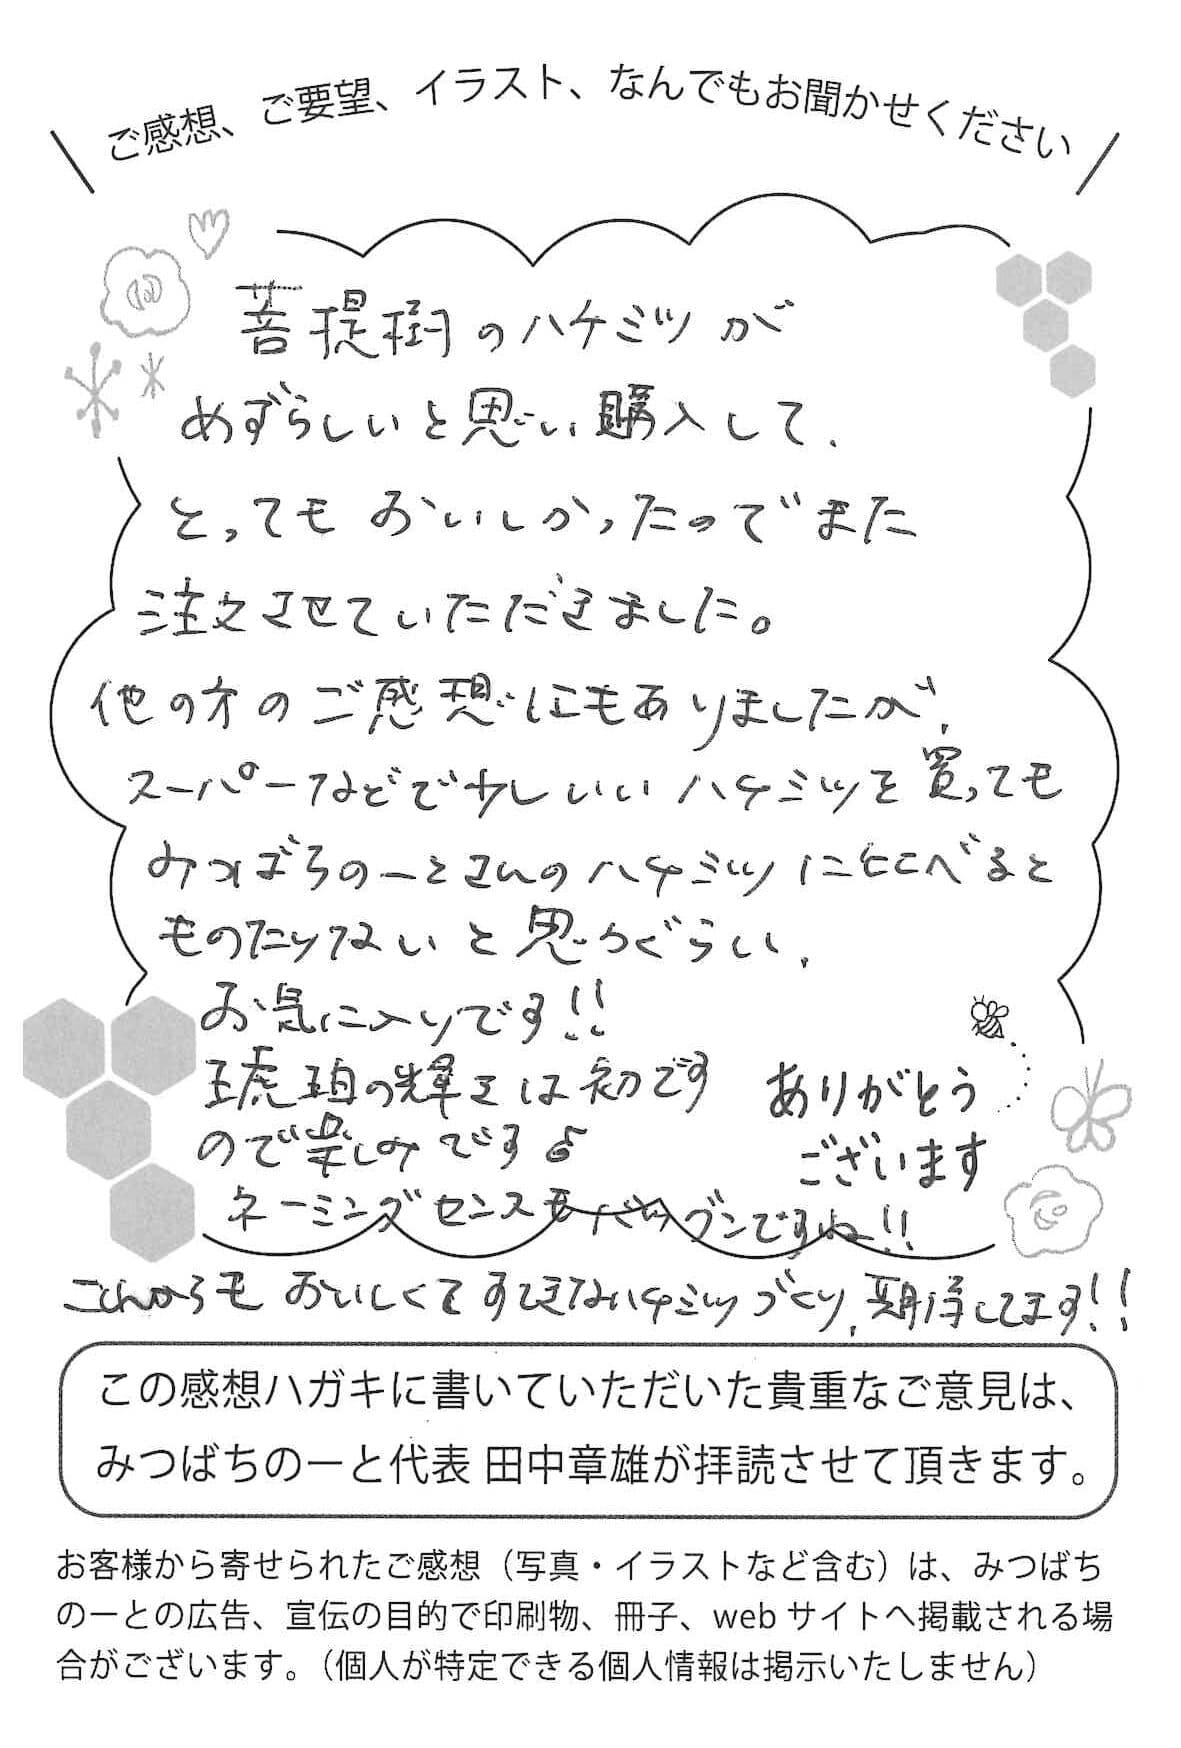 ご感想、ご要望、イラスト、なんでもお聞かせください
菩提樹のハチミツが
めずらしいと思い購入して、
とってもおいしかったのでまた
注文させていただきました。
他の方のご感想にもありましたが、
スーパーなどで少しいいハチミツを買っても
みつばちのーとさんのハチミツにくらべると
ものたりないと思うぐらい、
お気に入りです!!
琥珀の輝きは初です
ので楽しみです♪
ありがとう
ございます
ネーミングセンスもバツグンですね!!
これからもおいしくてすてきなハチミツづくり、期待してます!!
この感想ハガキに書いていただいた貴重なご意見は、
みつばちのーと代表 田中章雄が拝読させて頂きます。
お客様から寄せられたご感想（写真・イラストなど含む）は、みつばち
のーとの広告、宣伝の目的で印刷物、冊子、web サイトへ掲載される場
合がございます。（個人が特定できる個人情報は掲示いたしません）